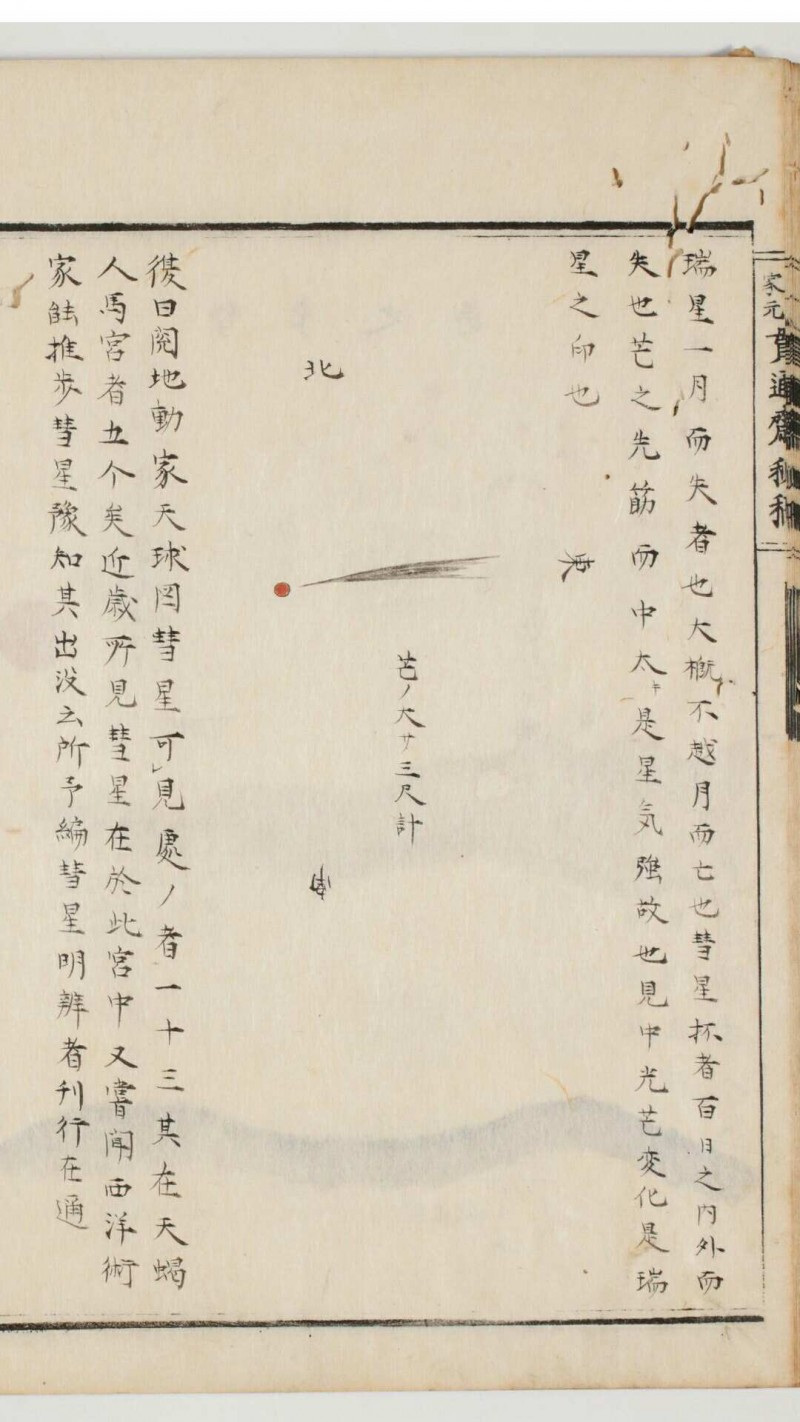 瑞星一月而失者也大概不越月而亡也彗星抔者百日之内外而
失也芒之先筋而中太キ是星気強故也見中光芒変化是瑞
星之印也
北
西
芒ノ大サ三尺計
後日閲地動家天球図彗星可見處ノ者一十三其在天蝎
人馬宮者五个矣近歳所見彗星在於此宮中又嘗聞西洋術
家能推歩彗星豫知其出没云所予編彗星明辨者刊行在通
家元